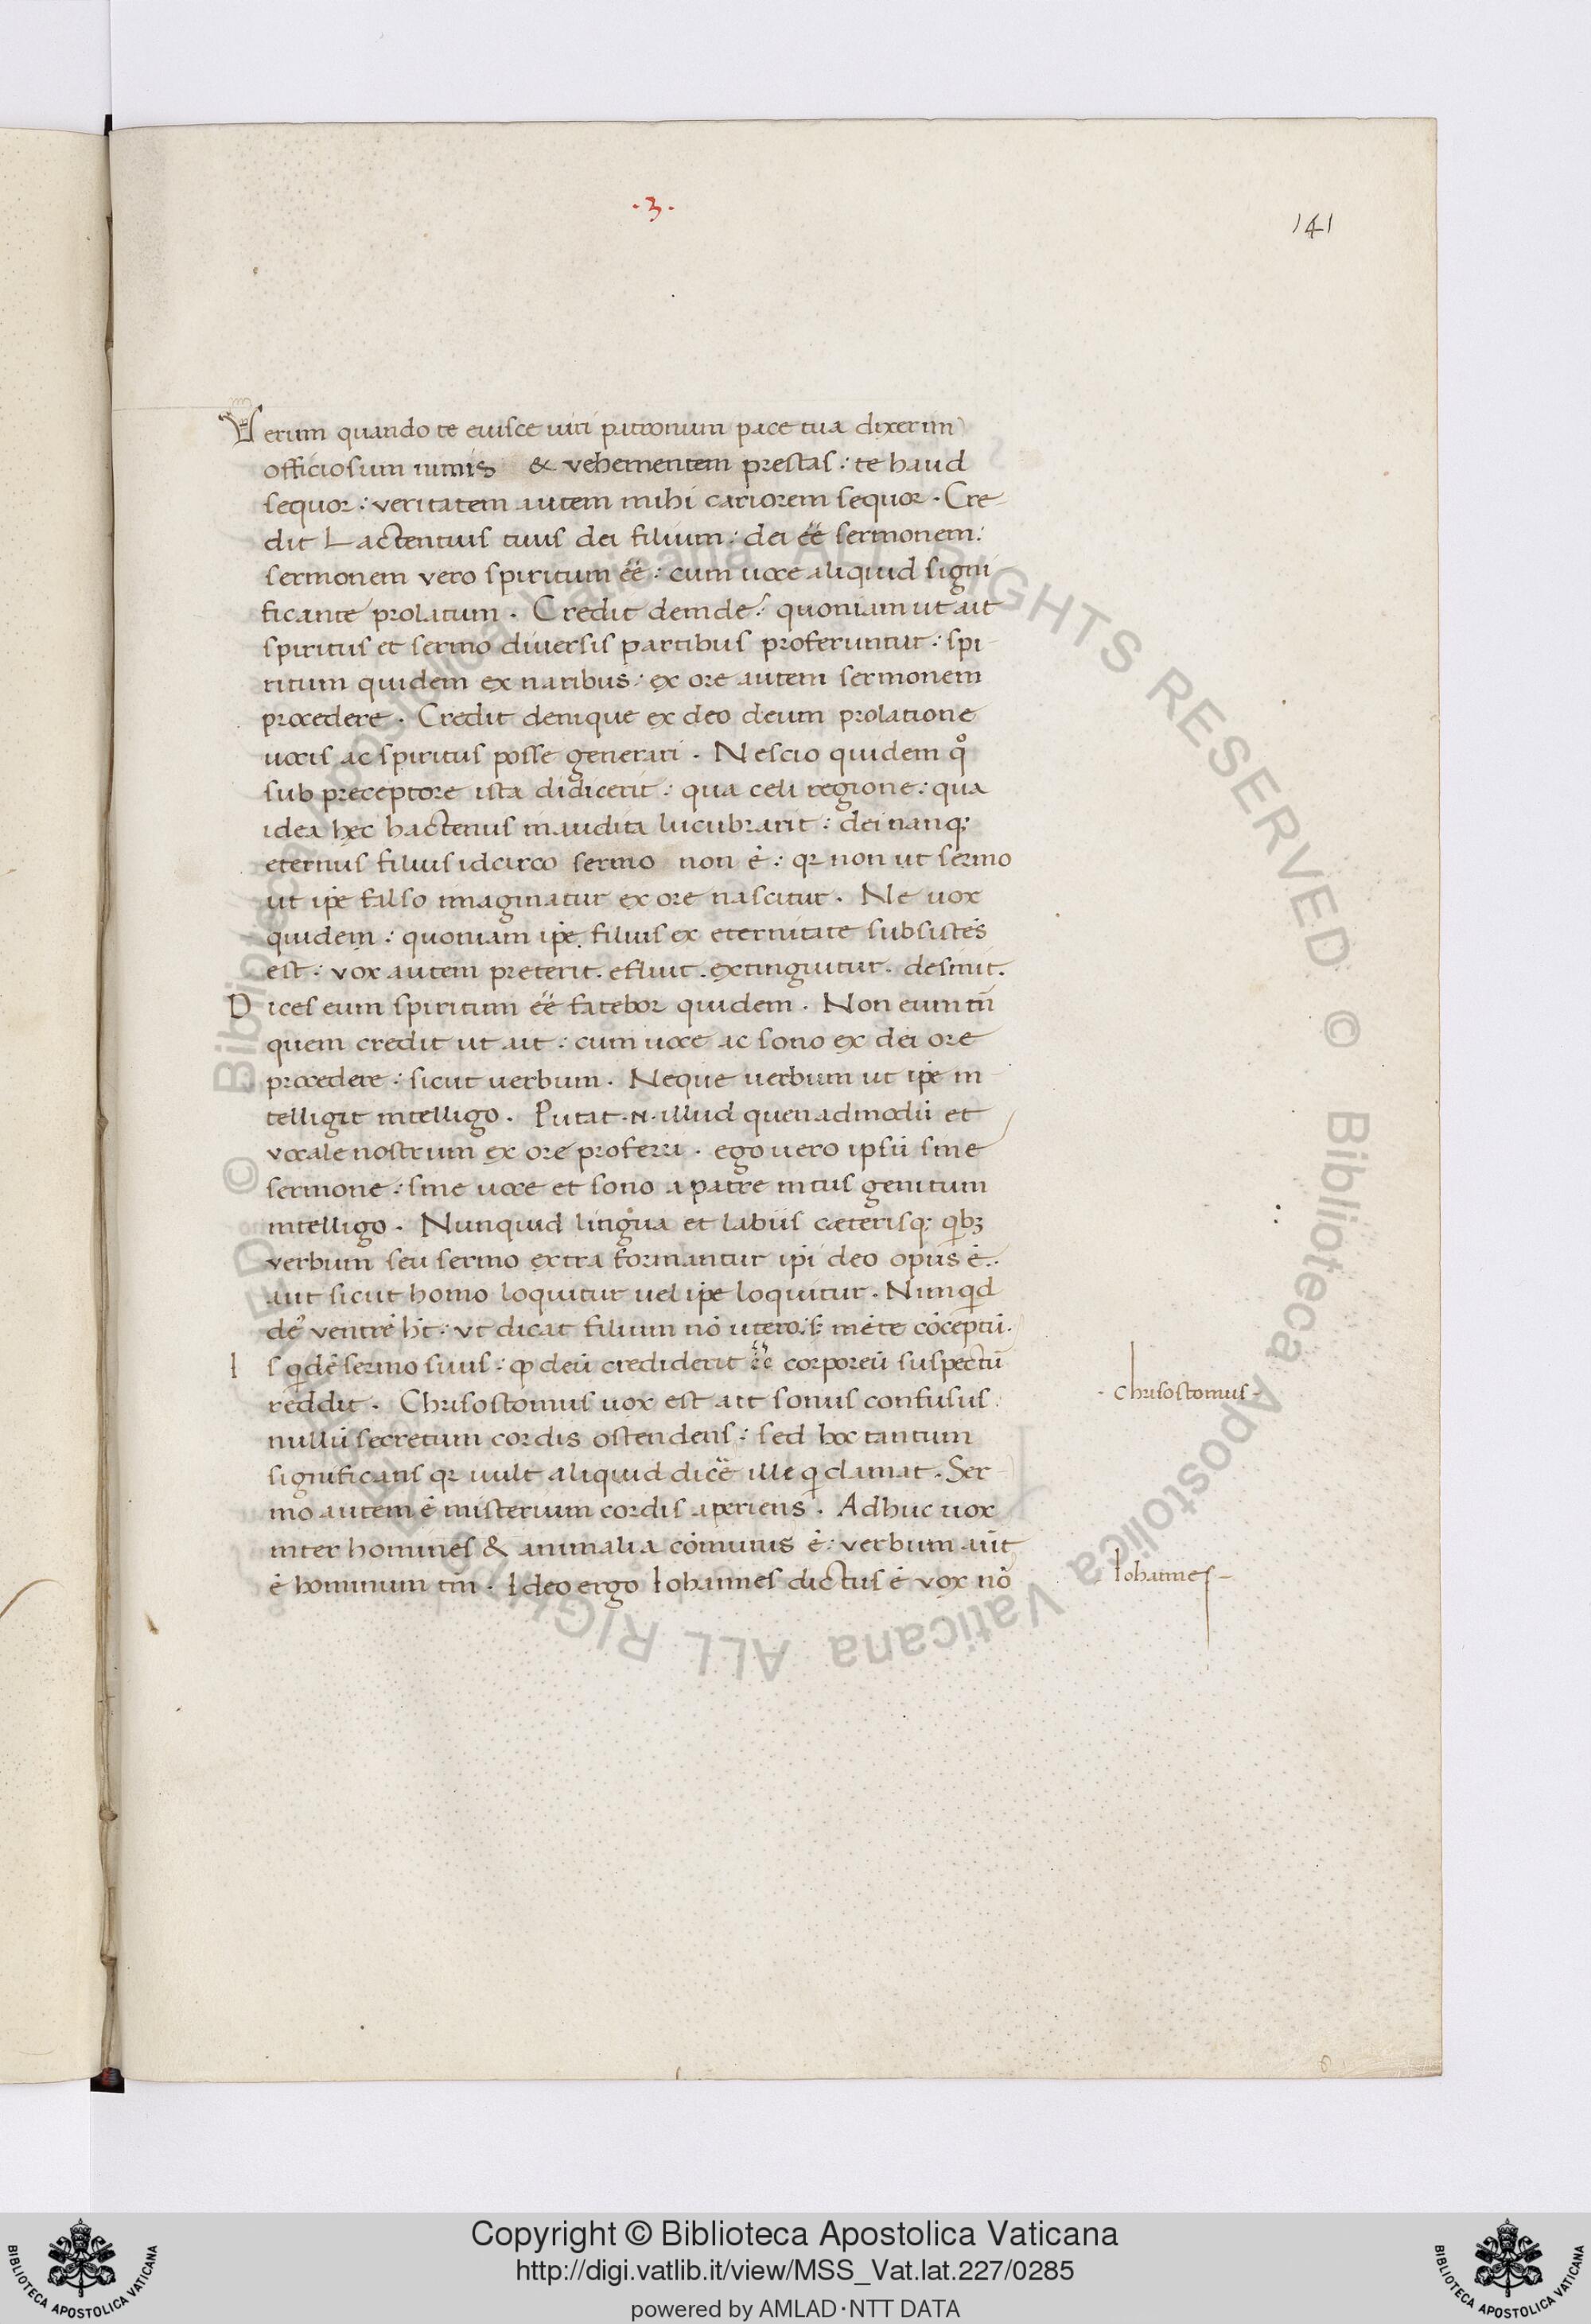 .3.
141
Verum quando te euisce uiri patronum pace tua dixerim
officiosum nimis & vehementem prestas: te haud
sequor: veritatem autem mihi cariorem sequor. Cre-
dit Lactentius tuus dei filium: dei ēē sermonem:
sermonem vero spiritum ēē: cum uoce aliquid signi
ficante prolatum. Credit deinde: quoniam ut ait
spiritus et sermo diuersis partibus proferuntur: spi-
ritum quidem ex naribus: ex ore autem sermonem
procedere. Credit denique ex deo deum prolatione
uocis ac spiritus posse generari. Nescio quidem qͦ
sub preceptore ista didicerit: qua celi regione: qua
idea hęc hactenus inaudita lucubrarit: dei nanq;
eternus filius idcirco sermo non ē: qr non ut sermo
ut ipe falso imaginatur ex ore nascitur. Ne uox
quidem: quoniam ipe filius ex eternitate subsistēs
est: vox autem preterit. efluit. extinguitur. desinit.
Dices eum spiritum ēē fatebor quidem. Non eum tn̄
quem credit ut ait: cum uoce ac sono ex dei ore
procedere: sicut uerbum. Neque uerbum ut ipe in
telligit intelligo. Putat .n. illud quenadmodū et
vocale nostrum ex ore proferri. ego uero ipsū sine
sermone: sine uoce et sono a patre intus genitum
intelligo. Nunquid lingua et labiis cæterisq; qbꝫ
verbum seu sermo extra formantur ipi deo opus ē:
aut sicut homo loquitur uel ipe loquitur. Nunqd
de' ventrē ht: vt dicat filium nō utero: s; mēte cōceptū.
Is qdē sermo suus: qp deū crediderit ēē corporeū suspectū
reddit. Chrisostomus uox est ait sonus confusus:
nullū secretum cordis ostendens: sed hoc tantum
significans qr uult aliquid dicē ille q clamat. Ser-
mo autem ē misterium cordis aperiens. Adhuc uox
inter homines & animalia cōmunis ē: verbum aūt
ē hominum tm̄. Ideo ergo Iohannes dictus ē vox nō
- Chrisostomus -
- Iohannes -
Copyright © Biblioteca Apostolica Vaticana
http://digi.vatlib.it/view/MSS_Vat.lat.227/0285
powered by AMLAD·NTT DATA
BIBLIOTECA APOSTOLICA VATICANA
BIBLIOTECA APOSTOLICA VATICANA
© Biblioteca Apostolica Vaticana ALL RIGHTS RESERVED © Biblioteca Apostolica Vaticana ALL RIGHTS RESERVED